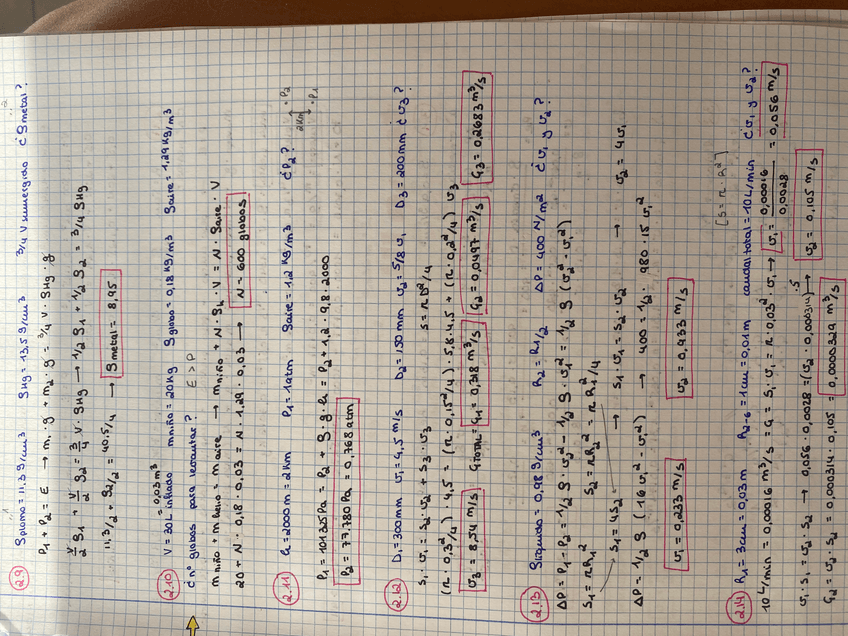 2.9 Splomo = 11.3 g/cm³ SHg = 13,5 g/cm³ 3/4 V sumergido ¿ Smetal?
P1 + P2 = E → m1·g + m2·g = 3/4 V · SHg · g
V/2 S1 + V/2 S2 = 3/4 V · SHg → 1/2 S1 + 1/2 S2 = 3/4 SHg
11,3/2 + S2/2 = 40.5/4 → Smetal = 8,95
2.10 V = 30L inflado = 0,03 m³ mniño = 20 Kg Sglobo = 0,18 Kg/m³ Saire = 1,29 Kg/m³
¿ nº globos para levantar? E > P
mniño + mhelio = maire → mniño + N · Sh · V = N · Saire · V
20 + N · 0,18 · 0,03 = N · 1.29 · 0,03 → N = 600 globos
2.11 h = 2000 m = 2 km P1 = 1 atm Saire = 1,2 Kg/m³ ¿P2? 2km ·P2 ·P1
P1 = 101325 Pa = P2 + S·g·h = P2 + 1,2 · 9,8 · 2000
P2 = 77.780 Pa = 0,768 atm
2.12 D1 = 300 mm v1 = 4,5 m/s D2 = 150 mm v2 = 5/8 v1 D3 = 200 mm ¿ v3?
S1 · v1 = S2 · v2 + S3 · v3 S = π D²/4
(π · 0,3²/4) · 4,5 = (π · 0,15²/4) · 5,8 · 4,5 + (π · 0,2²/4) v3
v3 = 8,54 m/s GTOTAL = G1 = 0,318 m³/s G2 = 0,0497 m³/s G3 = 0,2683 m³/s
2.13 Slíquido = 0,98 g/cm³ R2 = R1/2 ΔP = 400 N/m² ¿v1 y v2?
ΔP = P1 - P2 = 1/2 S · v2² - 1/2 S · v1² = 1/2 S (v2² - v1²)
S1 = πR1² S2 = πR2² = π R1²/4
S1 = 4S2 → S1 · v1 = S2 · v2 → v2 = 4v1
ΔP = 1/2 S (16 v1² - v1²) → 400 = 1/2 · 980 · 15 v1²
v1 = 0,233 m/s v2 = 0,933 m/s
[S = π · R²]
2.14 R1 = 3cm = 0,03 m R2-6 = 1cm = 0,01m caudal total = 10 L/min ¿v1 y v2?
10 L/min = 0,00016 m³/s = G = S1 · v1 = π · 0,03² · v1 → v1 = 0,00016/0,0028 = 0,056 m/s
v1 · S1 = v2 · S2 → 0,056 · 0,0028 = (v2 · 0,000314)·5 → v2 = 0,105 m/s
G2 = v2 · S2 = 0,000314 · 0,105 = 0,0000329 m³/s